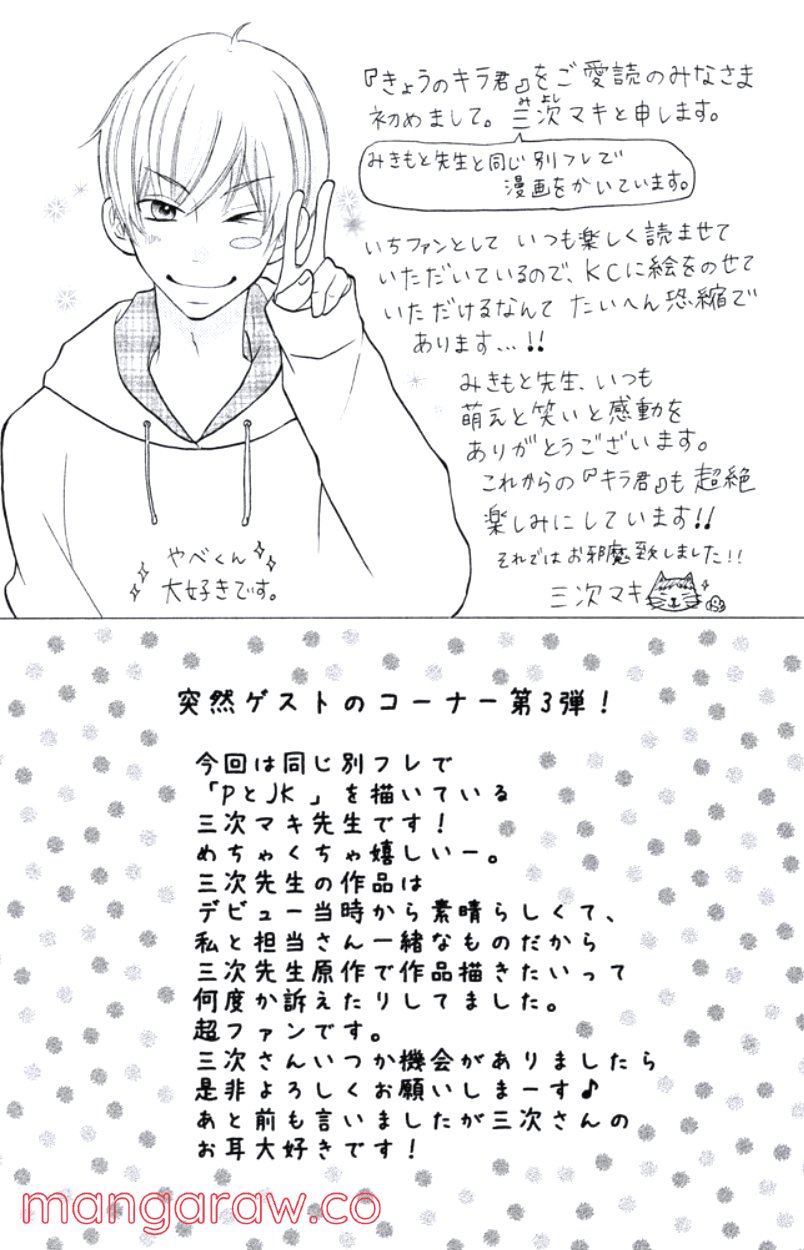 『きょうのキラ君』をご愛読のみなさま
初めまして。三次マキと申します。
みよし
みきもと先生と同じ別フレで
漫画をかいています。
いちファンとして いつも楽しく読ませて
いただいているので、KCに絵をのせて
いただけるなんて たいへん恐縮で
あります…!!
みきもと先生、いつも
萌えと笑いと感動を
ありがとうございます。
これからの『キラ君』も超絶
楽しみにしています!!
それではお邪魔致しました!!
三次マキ
やべくん
大好きです。
突然ゲストのコーナー第3弾！
今回は同じ別フレで
「PとJK」を描いている
三次マキ先生です！
めちゃくちゃ嬉しいー。
三次先生の作品は
デビュー当時から素晴らしくて、
私と担当さん一緒なものだから
三次先生原作で作品描きたいって
何度か訴えたりしてました。
超ファンです。
三次さんいつか機会がありましたら
是非よろしくお願いしまーす♪
あと前も言いましたが三次さんの
お耳大好きです！
mangaraw.co